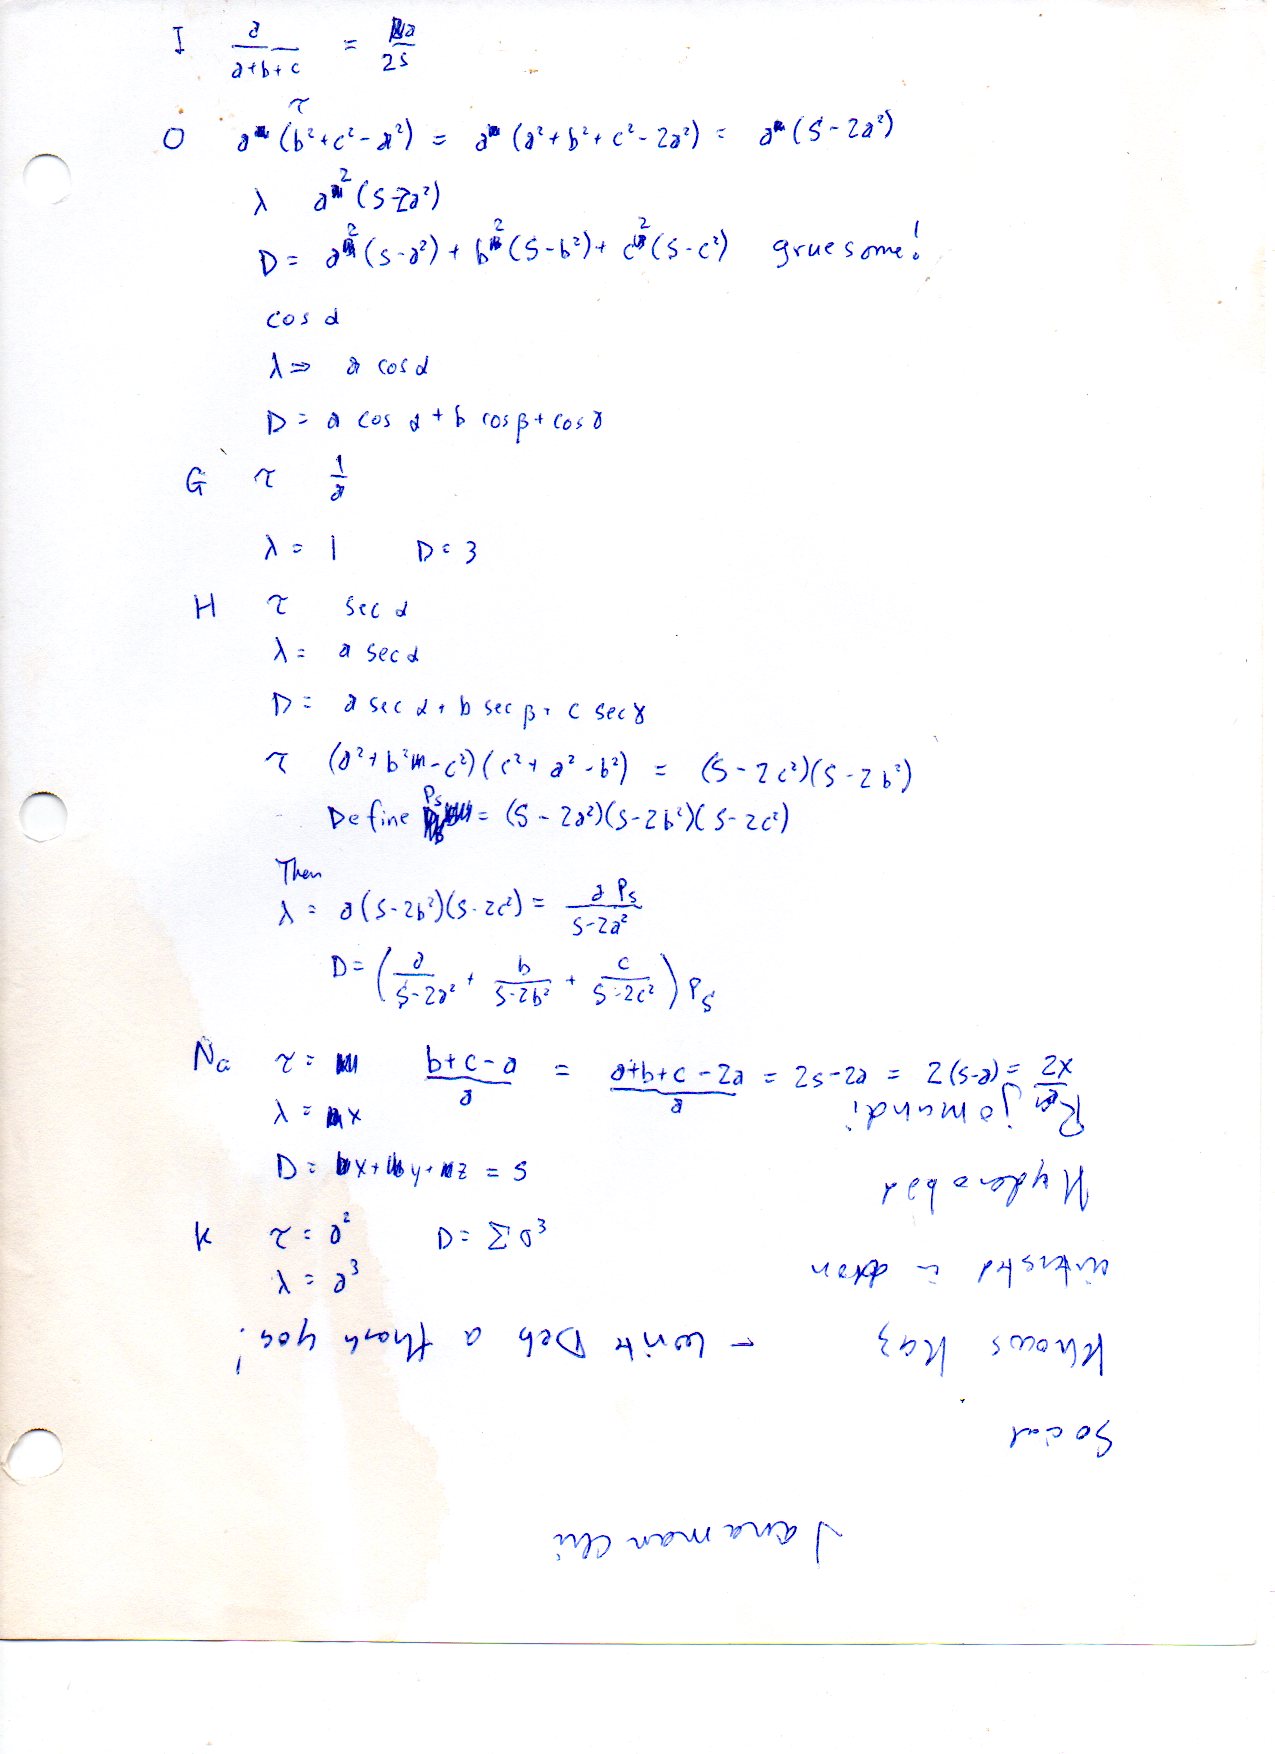 I a/(a+b+c) = a/2s
τ
O a (b²+c²-a²) = a (a²+b²+c²-2a²) = a (S-2a²)
λ a² (S-2a²)
D = a² (S-a²) + b² (S-b²) + c² (S-c²) gruesome!
cos α
λ ⇒ a cos α
D = a cos α + b cos β + cos γ
G τ 1/a
λ = 1 D = 3
H τ sec α
λ = a sec α
D = a sec α + b sec β + c sec γ
τ (a²+b²-c²)(c²+a²-b²) = (S-2c²)(S-2b²)
Define Ps = (S-2a²)(S-2b²)(S-2c²)
Then
λ = a(S-2b²)(S-2c²) = a Ps/(S-2a²)
D = (a/(S-2a²) + b/(S-2b²) + c/(S-2c²)) Ps
Na τ = (b+c-a)/a = (a+b+c-2a)/a = 2s-2a = 2(s-a) = 2x/a
λ = x
D = x + y + z = s
K τ = a² D = Σa³
λ = a³
Social
Knows Kaz - write Deb a thank you!
interested in
Hyderabad